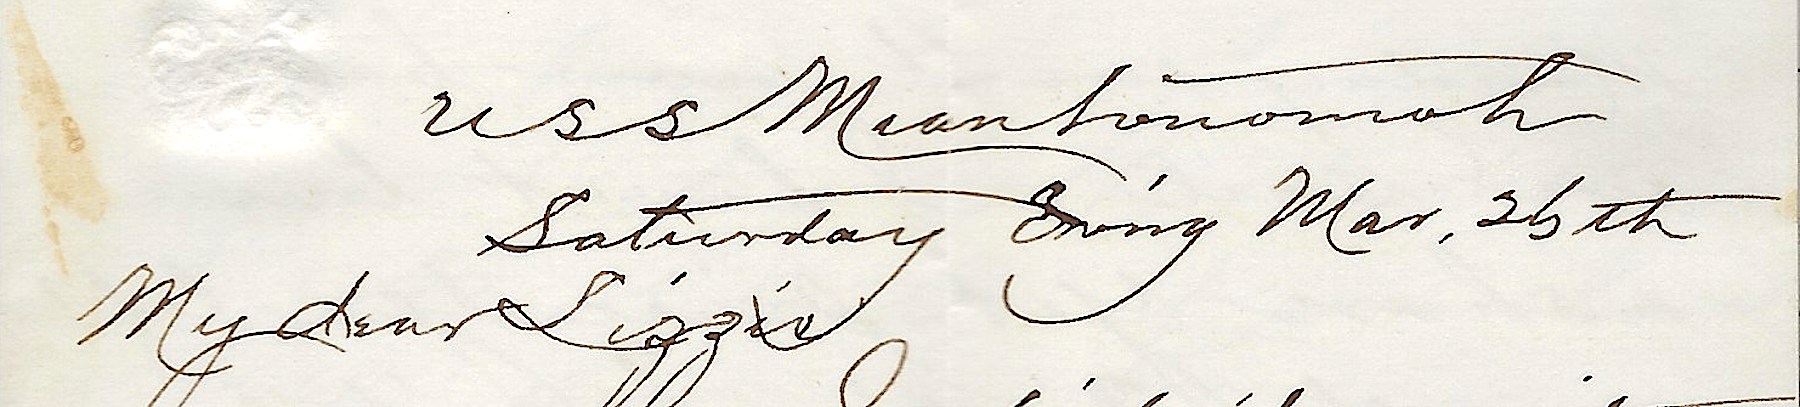 USS Miantonomoh
Saturday Ev'ng Mar, 26th
My dear Lizzie